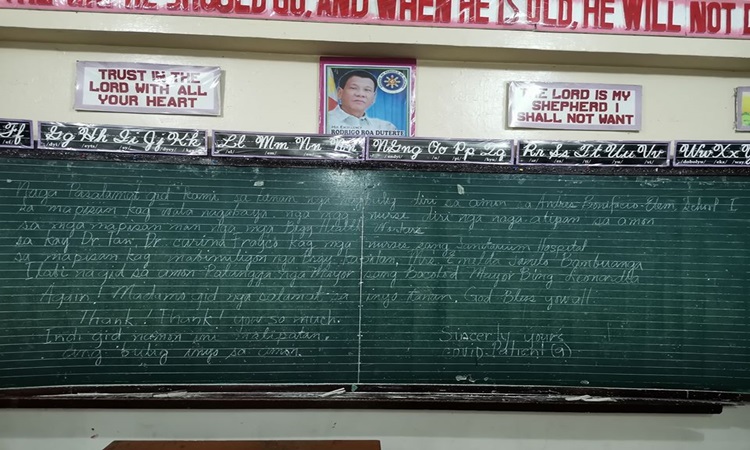 SHOULD GO, AND WHEN HE IS OLD, HE WILL NOT
TRUST IN THE
LORD WITH ALL
YOUR HEART
RODRIGO ROA DUTERTE
THE LORD IS MY
SHEPHERD I
SHALL NOT WANT
Ff Gg Hh Ii Jj Kk Ll Mm Nn Ññ NGng Oo Pp Qq Rr Ss Tt Uu Vv Ww Xx
Naga Pasalamat gid kami sa tanan nga diri sa amon sa Andres Bonifacio Elem School I
sa mapisan kag nga mga nurse diri nga naga atipan sa amon
sa mga mapisan man nga mga Brgy Health
sa kay Dr. Tan, Dr. Carina kag mga nurse sang Sanitarium Hospital
sa mapisan kag mabinuligon nga Brgy Kapitan,
Ilabi na gid sa amon Palangga nga Mayor sang Bacolod Mayor Bing Leonardia
Again! Madamo gid nga salamat sa inyo tanan. God Bless you all
Thank! Thank! you so much.
Indi gid namon ini malipatan,
ang bulig inyo sa amon.
Sincerly yours
Covid Patient (9)